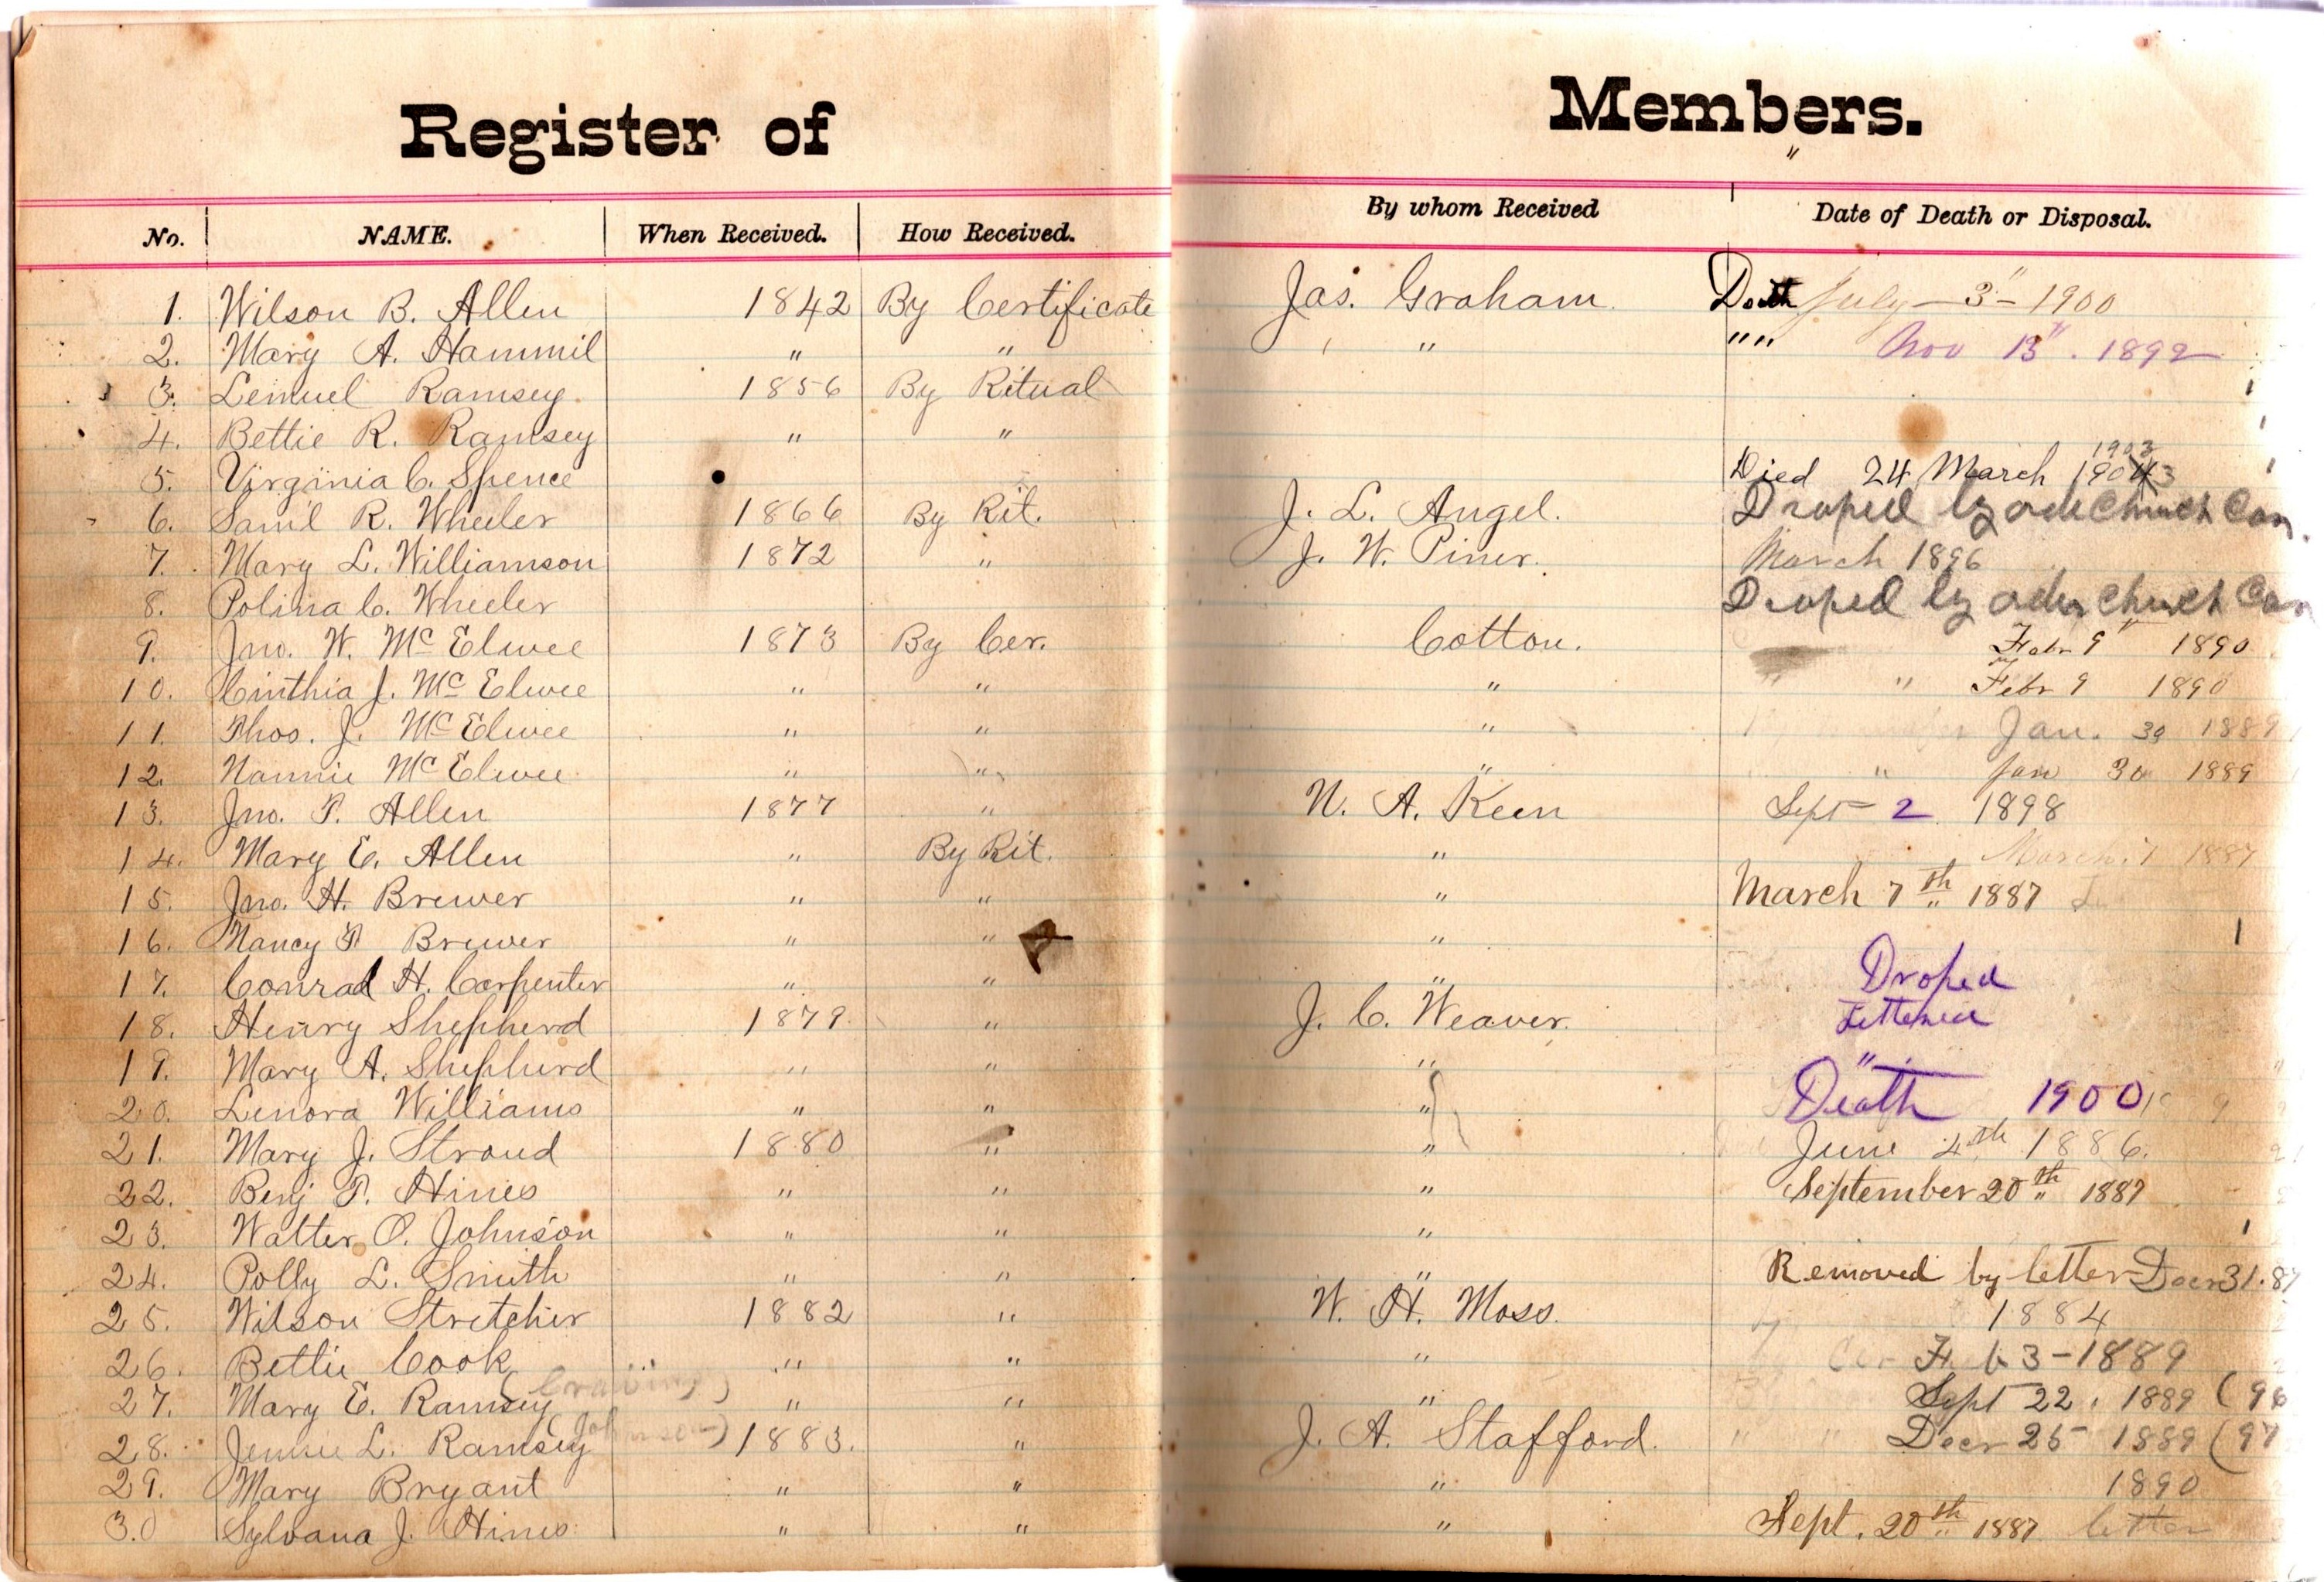 Register of Members.
No. NAME. When Received. How Received. By whom Received Date of Death or Disposal.
1. Wilson B. Allen 1842 By Certificate Jas. Graham. Death July 3 - 1900
2. Mary A. Hammil " " " "" Nov 13". 1892
3. Lemuel Ramsey. 1856 By Ritual
4. Bettie R. Ramsey " "
1903
5. Virginia C. Spence Died 24 March 1903
6. Saml R. Wheeler 1866 By Rit. J. L. Angel. Droped by Church Con.
7. Mary L. Williamson 1872 " J. W. Piner. March 1896
8. Polina C. Wheeler Droped by order Church Con
9. Jno. W. Mc Elwee 1873 By Cer. Cotton. Febr 9" 1890
10. Cinthia J. Mc Elwee " " " " Febr 9 1890
11. Thos. J. Mc Elwee " " " Jan. 30 1889
12. Nannie Mc Elwee " " " " Jan 30 1889
13. Jno. T. Allen 1877 " N. A. Keen Sept 2 1898
14. Mary E. Allen " By Rit. " March 7 1887
15. Jno. H. Brewer " " " March 7th 1887
16. Nancy T Brewer " " "
17. Conrad H. Carpenter " " " Droped
18. Henry Shepherd 1879. " J. C. Weaver.
19. Mary A. Shepherd " " " "
20. Lenora Williams " " " Death 1900
21. Mary J. Stroud 1880 " " June 4th 1886.
22. Benj T. Hines " " " September 20th 1887
23. Walter O. Johnson " " "
24. Polly L. Smith " " " Removed by letter Decr 31. 87
25. Wilson Stretcher 1882 " W. H. Moss. 1884
26. Bettie Cook " " " Feb 3 - 1889
27. Mary E. Ramsey " " " Sept 22, 1889 (96
28. Jennie L. Ramsey (Johnson) 1883. " J. A. Stafford. " " Decr 25 1889 (97
29. Mary Bryant " " " 1890
30 Sylvana J. Hines " " " Sept. 20th 1887 letter